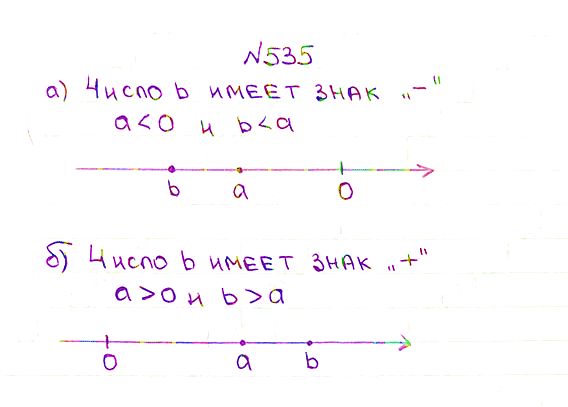 №535
а) Число b имеет знак „−"
a<0 и b<a
b a 0
б) Число b имеет знак „+"
a>0 и b>a
0 a b